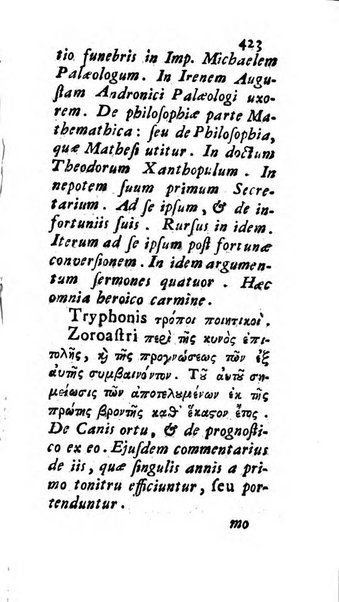 423
tio funebris in Imp. Michaelem
Palæologum. In Irenem Augu-
ſtam Andronici Palæologi uxo-
rem. De philoſophiæ parte Ma-
themathica: ſeu de Philoſophia,
quæ Matheſi utitur. In doctum
Theodorum Xanthopulum. In
nepotem ſuum primum Secre-
tarium. Ad ſe ipſum, & de in-
fortuniis ſuis. Rurſus in idem.
Iterum ad ſe ipſum poſt fortunæ
converſionem. In idem argumen-
tum ſermones quatuor. Hæc
omnia heroico carmine.
Tryphonis τρόποι ποιητικοί.
Zoroaſtri περὶ τῆς κυνὸς ἐπι-
τολῆς, καὶ τῆς προγνώσεως τῶν ἐξ
αυτῆς συμβαινόντων. Τοῦ αὐτοῦ ση-
μείωσις τῶν ἀποτελουμένων ἐκ τῆς
πρώτης βροντῆς καθ' ἕκαστον ἔτος.
De Canis ortu, & de prognoſti-
co ex eo. Ejuſdem commentarius
de iis, quæ ſingulis annis a pri-
mo tonitru efficiuntur, ſeu por-
tenduntur.
mo